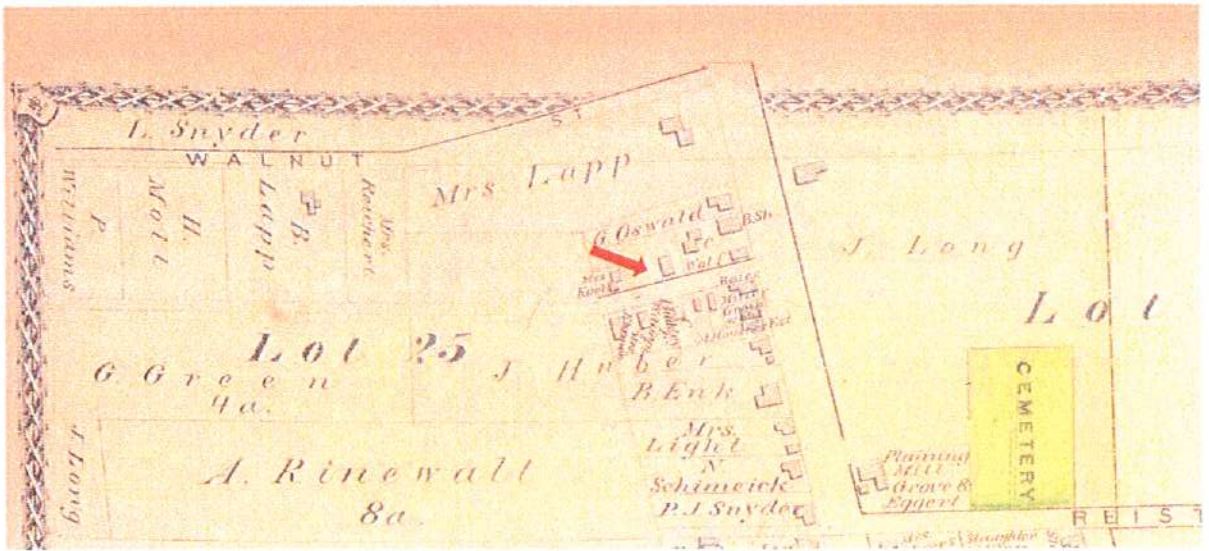 L. Snyder
WALNUT
ST
Williams
P.
H.
Moll
B.
Lapp
Mrs.
Rouchert
Mrs. Lapp
G. Oswald
B.Sh.
C.
Wolf
Mrs
Koch
J. Long
Lot
Lot 25
G. Green
4a.
J. Huber
B. Enk
Mrs.
Light
N.
Schimeick
P. J. Snyder
J. Long
A. Rinewalt
8a.
Planing
Mill
Grove &
Eggert
CEMETERY
REIST